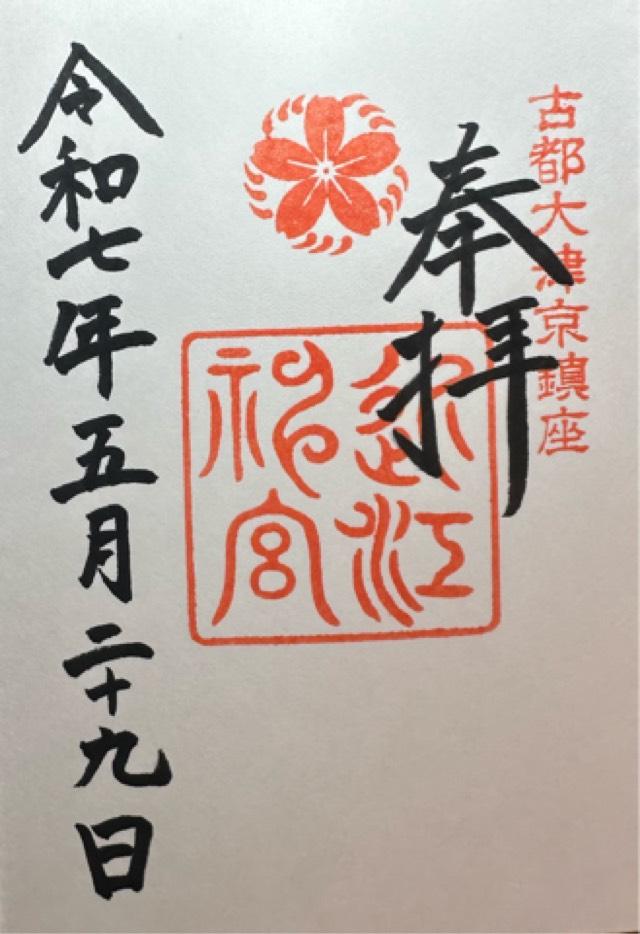 古都大津京鎮座
奉拝
近江
神宮
令和七年五月二十九日